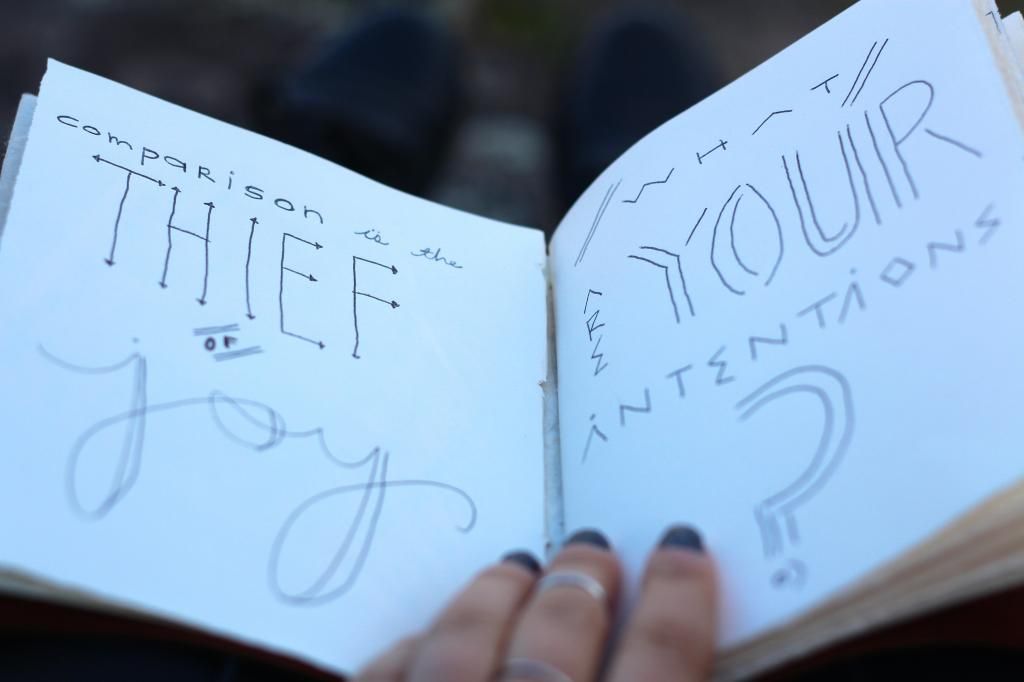 comparison is the
THIEF
OF
joy
WHAT
ARE YOUR
INTENTIONS
?